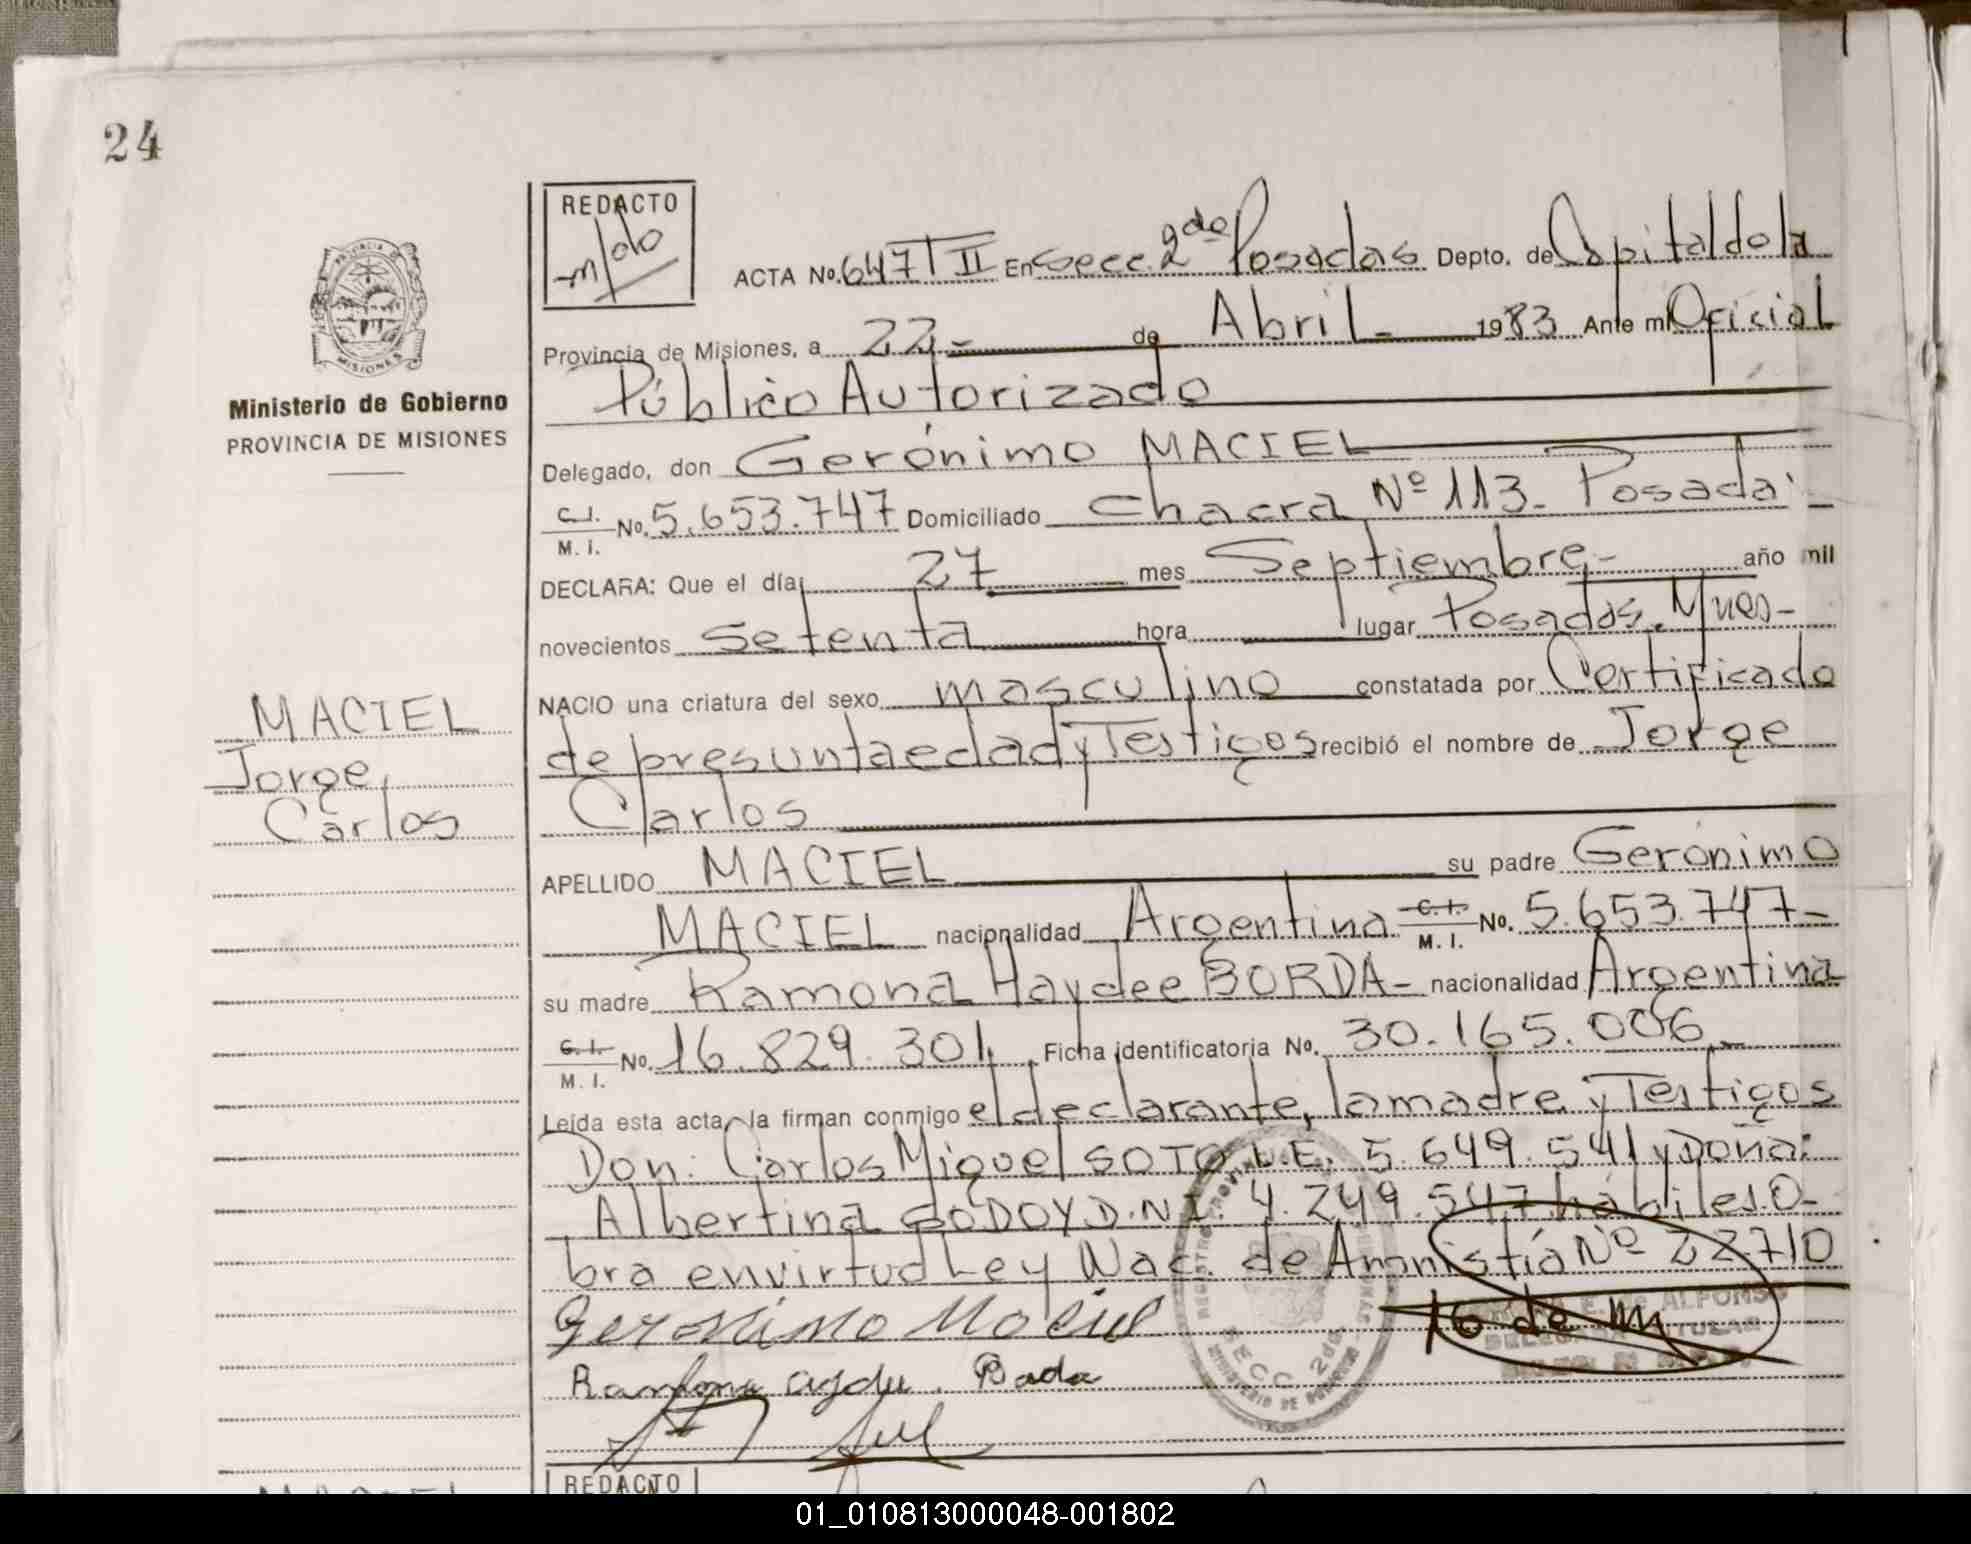 24
REDACTO
PROVINCIA
MISIONES
Ministerio de Gobierno
PROVINCIA DE MISIONES
ACTA No. 647 T II En Secc. 2da Posadas Depto. de Capital de la
Provincia de Misiones, a 22- de Abril- 1983 Ante mi Oficial
Público Autorizado
Delegado, don Gerónimo MACIEL
C.I. M.I. No. 5.653.747 Domiciliado Chacra Nº 113- Posadas
DECLARA: Que el día 27 mes Septiembre- año mil
novecientos setenta hora lugar Posadas, Mnes-
NACIO una criatura del sexo masculino constatada por Certificado
de presunta edad y Testigos recibió el nombre de Jorge
Carlos
MACIEL
Jorge
Carlos
APELLIDO MACIEL su padre Gerónimo
MACIEL nacionalidad Argentina C.I. M.I. No. 5.653.747-
su madre Ramona Haydee BORDA- nacionalidad Argentina
C.I. M.I. No. 16.829.301 Ficha identificatoria No. 30.165.006
Leída esta acta, la firman conmigo el declarante, la madre y Testigos
Don: Carlos Miguel SOTO L.E. 5.649.541 y Doña:
Albertina GODOY D.N.I. 4.249.547 hábiles. O-
bra en virtud Ley Nac. de Amnistía Nº 22710
Geronimo Maciel
16 de
E. de ALFONSO
TITULAR
SECC. 2da.
REDACTO
01_010813000048-001802